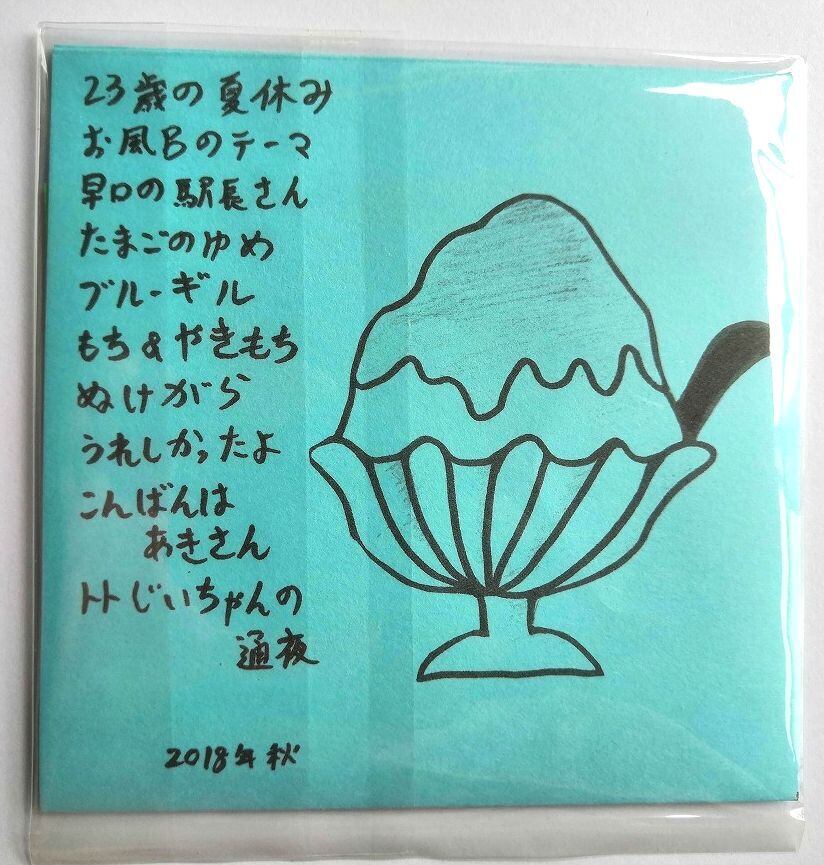 23歳の夏休み
お風呂のテーマ
早口の駅長さん
たまごのゆめ
ブルーギル
もち&やきもち
ぬけがら
うれしかったよ
こんばんは
あきさん
トトじいちゃんの
通夜
2018年秋